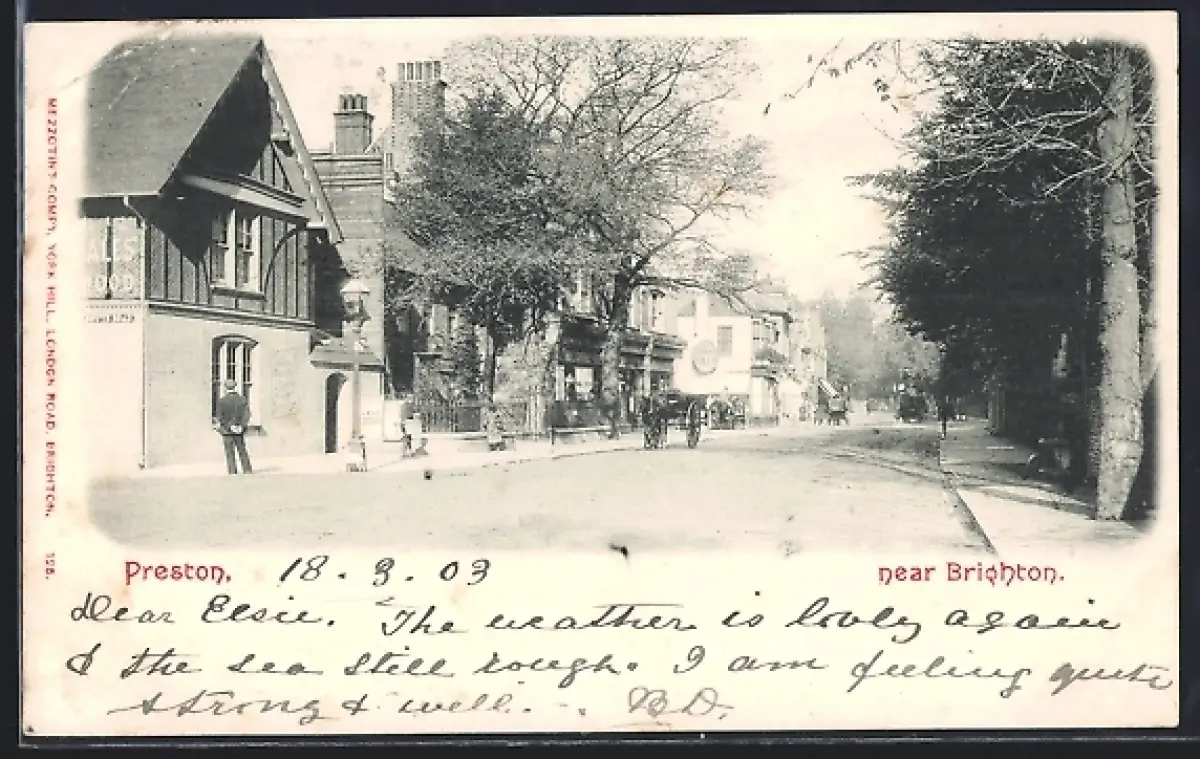 MEZZOTINT COMPY, YORK HILL, LONDON ROAD, BRIGHTON.
Preston, 18.3.03 near Brighton.
Dear Elsie. The weather is lovly again
& the sea still rough. I am feeling quite
strong & well. . BD.